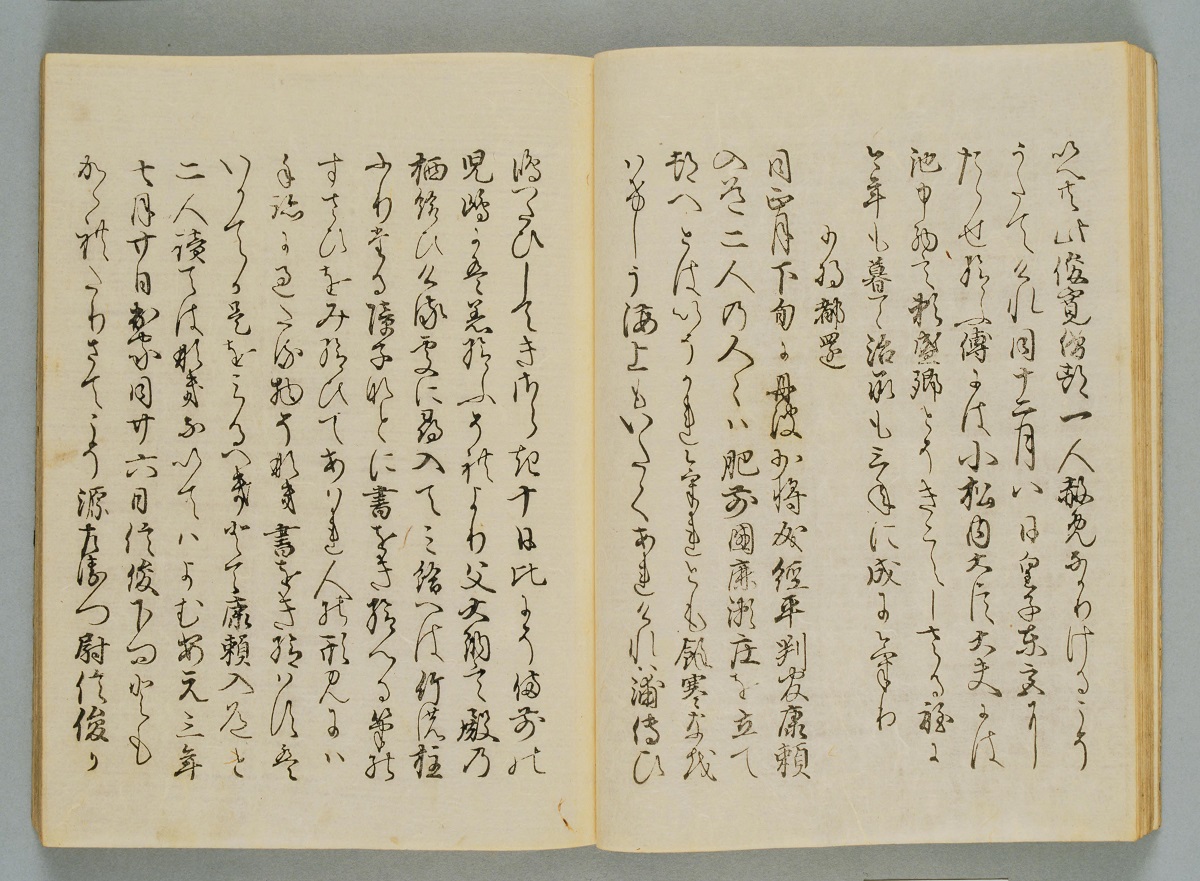 以人共此俊寛僧都一人赦免なかりけるこそ
うたてけれ同十二月八日皇子東宮にし
たゝせ給ふ傅には小松内大臣大夫には
池中納言頼盛卿とそきこえしさる程に
今年も暮て治承も三年に成にけり
少将都還
同正月下旬に丹波少将成経平判官康頼
入道二人の人々は肥前國鹿瀬庄を立て
都へとはいそかれけれとも餘寒なを
はけしう海上もいたくあれけれは浦傳ひ
嶋つたひしてきさらき十日比にそ備前の
児嶋に着給ふそれより父大納言殿の
栖給ひける處に尋入てみ給へは竹の柱
ふりたる障子なとに書をき給へる筆の
すさひをみ給ひてあはれ人の形見には
手跡に過たる物そなき書をき給はすは
いかてか是をみるへきとて康頼入道と
二人讀ては泣ないてはよむ安元三年
七月廿日出家同廿六日信俊下向とも
かゝれたりさてこそ源左衛門尉信俊か